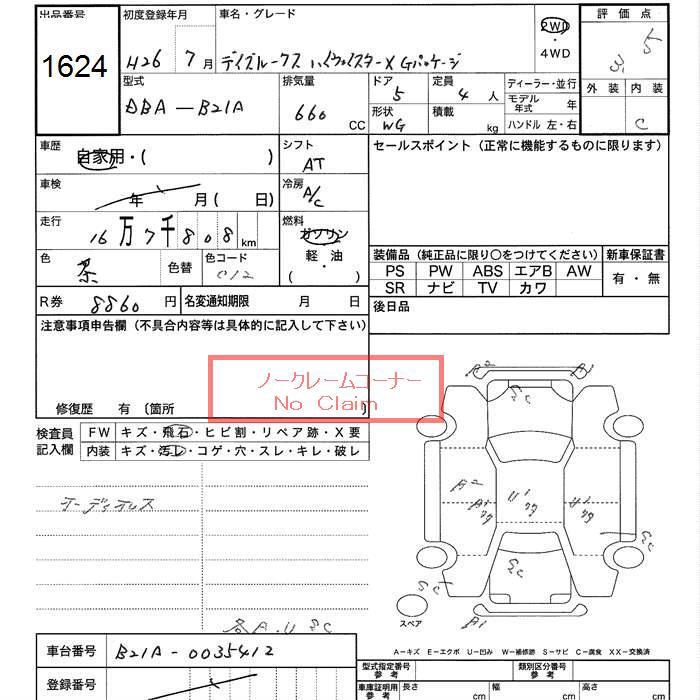 出品番号 初度登録年月 車名・グレード 2WD ・ 4WD 評価点
1624 H26 7月 デイズルークス ハイウェイスターX Gパッケージ 3.5
型式 排気量 ドア 定員 ディーラー・並行 外装 内装
DBA－B21A 660 CC 5 4人 モデル年式 年 C
形状 積載 ハンドル 左・右
WG kg
車歴 自家用・( ) シフト AT セールスポイント（正常に機能するものに限ります）
車検 年 月( 日) 冷房 A/C
走行 16万7千808km 燃料 ガソリン
色 茶 色替 色コード C12 軽・油 ( )
装備品（純正品に限り〇をつけてください） 新車保証書
PS PW ABS エアB AW 有・無
SR ナビ TV カワ
R券 8860円 名変通知期限 月 日 後日品
注意事項申告欄（不具合内容等は具体的に記入して下さい）
ノークレームコーナー
No Claim
修復歴 有〔箇所 〕
検査員記入欄 FW キズ・飛石・ヒビ割・リペア跡・X要
内装 キズ・汚レ・コゲ・穴・スレ・キレ・破レ
オーディオレス
A2
A2
A1
U1
U1
SC
SC
SC
A1
スペア
各A.U SC
A－キズ E－エクボ U－凹ミ W－補修跡 S－サビ C－腐食 XX－交換済
車台番号 B21A-0035412 型式指定番号 参考 類別区分番号 参考
登録番号 車庫証明用 参考 長さ cm 幅 cm 高さ cm